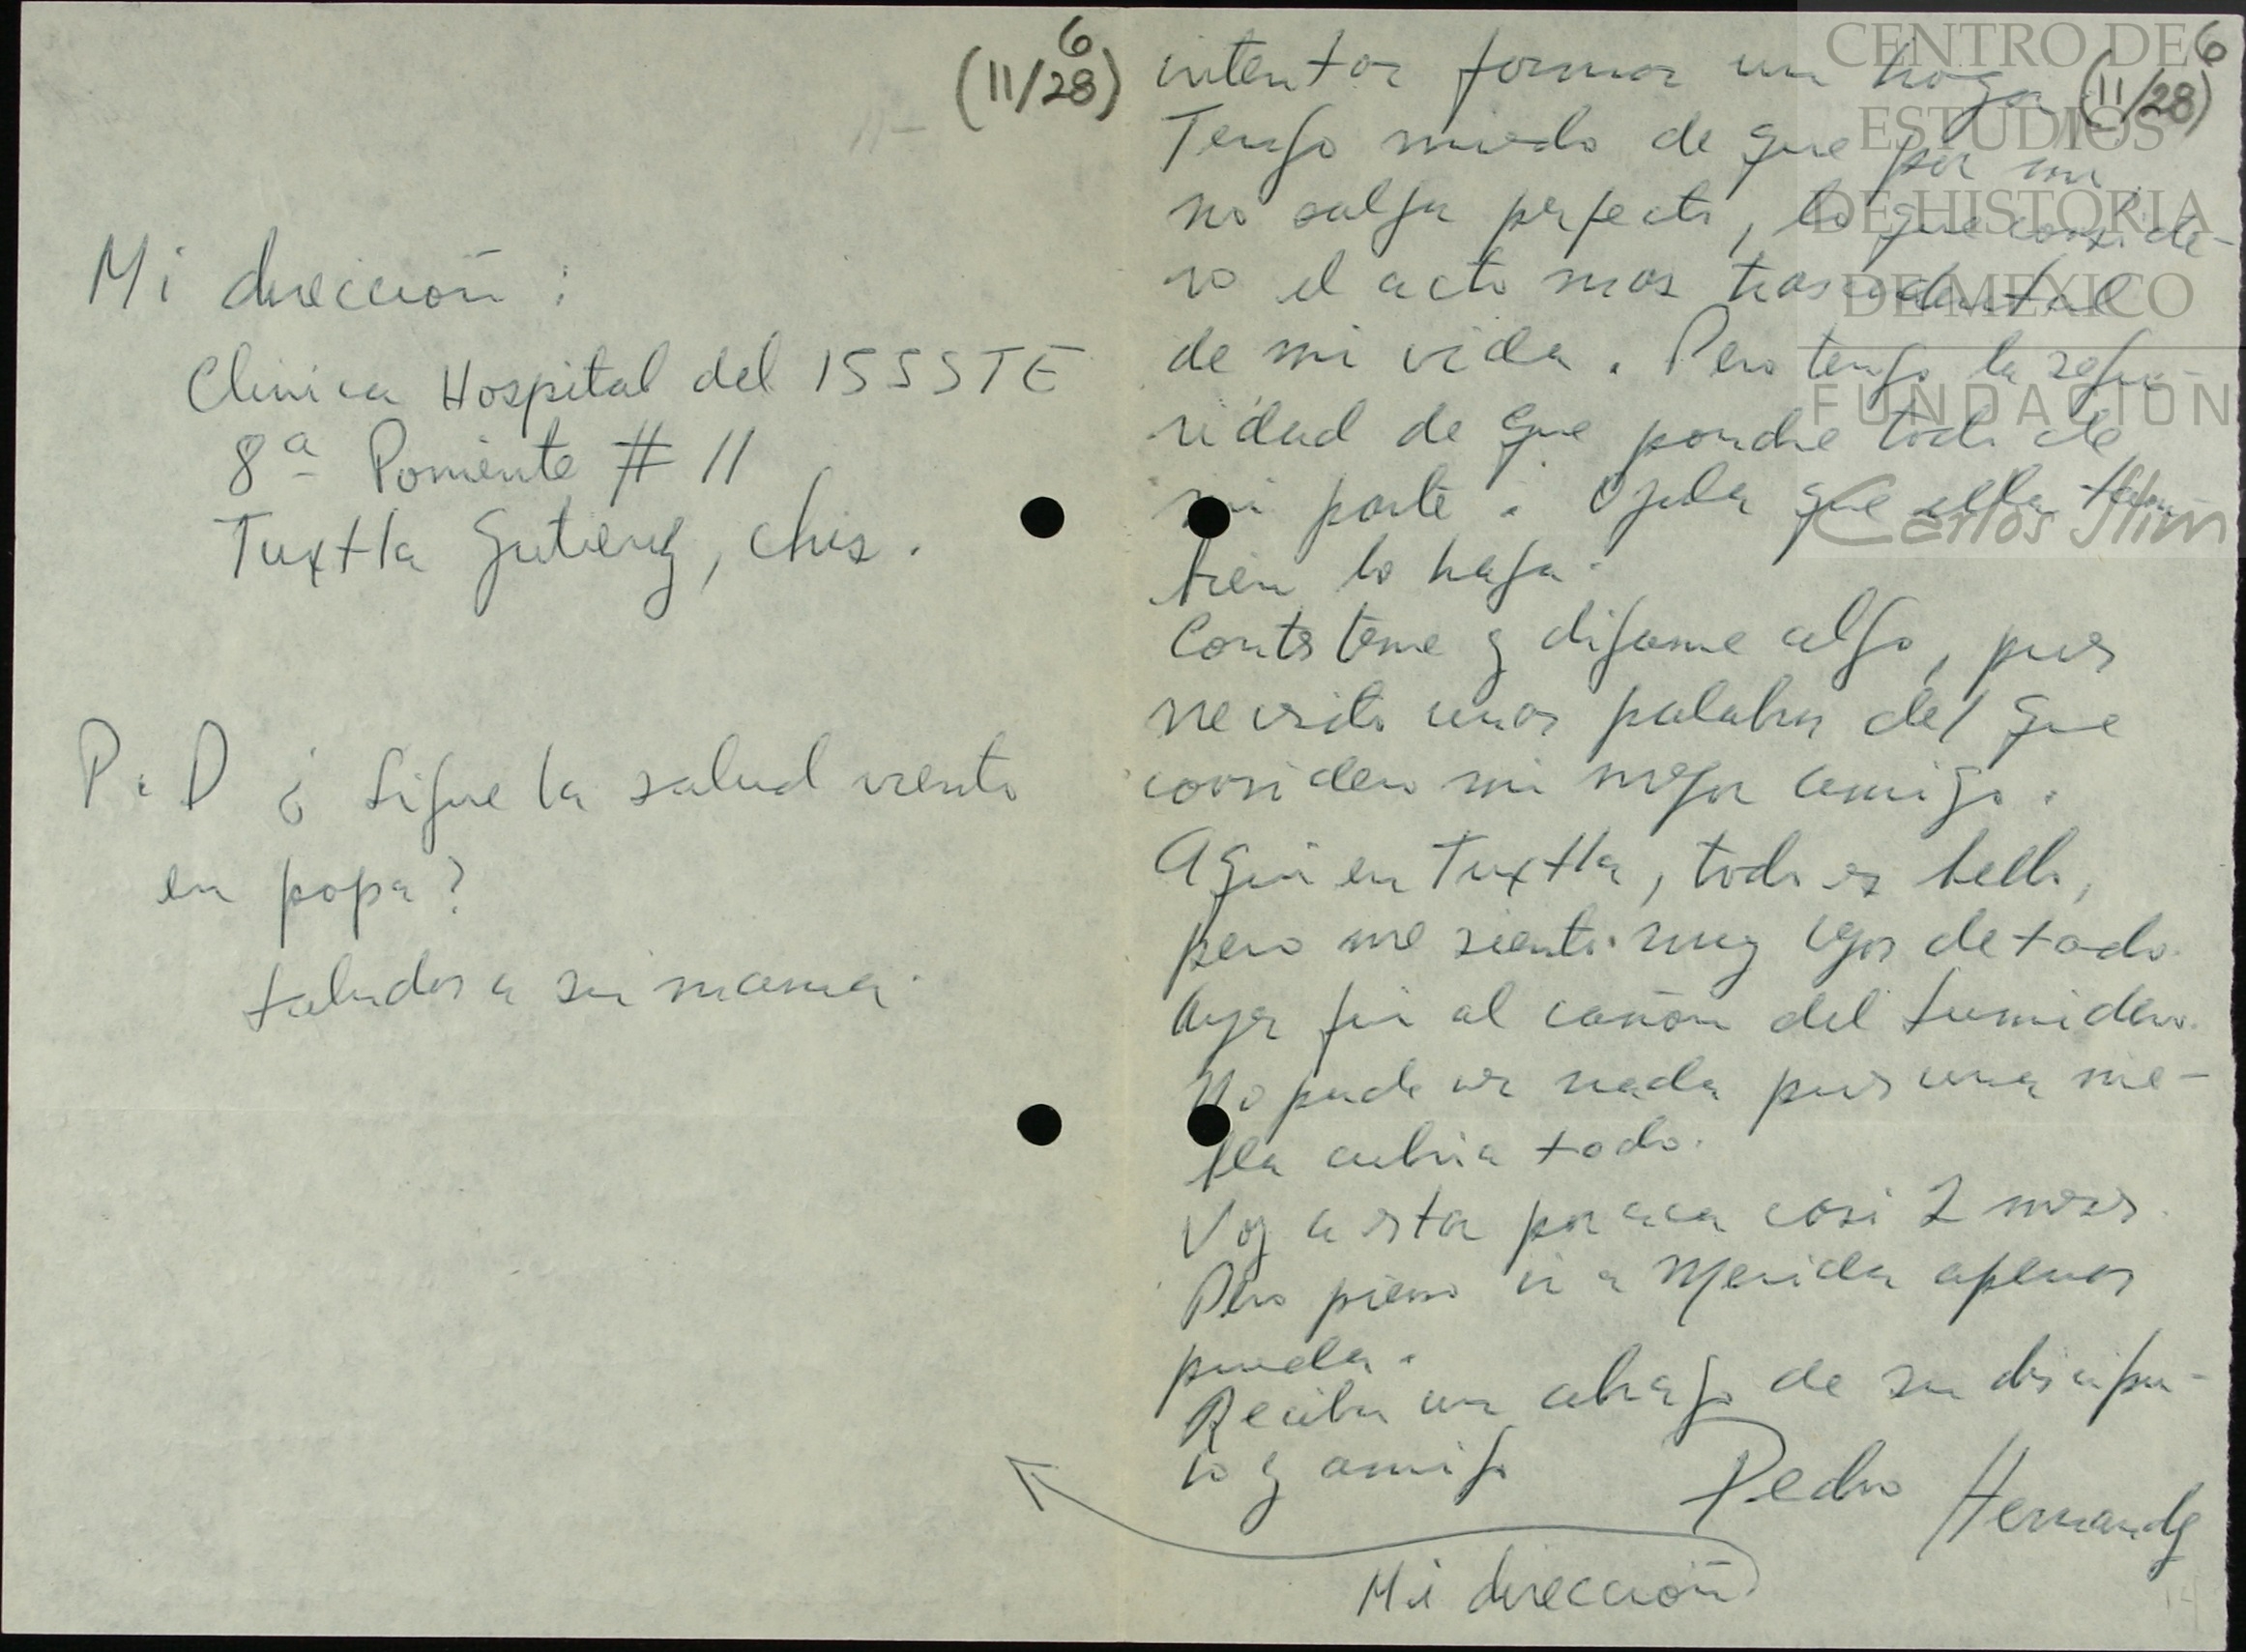 6
(11/28)
Mi dirección :
Clinica Hospital del ISSSTE
8ª Poniente # 11
Tuxtla Gutierrez, Chis.
P.D ¿ Sigue la salud viento
en popa?
Saludos a su mama.
6
(11/28)
intentar formar un hogar
Tengo miedo de que por mi
no salga perfecto, lo que conside-
ro el acto mas trascedental
de mi vida. Pero tengo la segu-
ridad de que pondre todo de
mi parte. Ojala que ella tam-
bien lo haga.
Contesteme y digame algo, pues
necesito unas palabras del que
considero mi mejor amigo.
Aqui en Tuxtla, todo es bello,
pero me siento muy lejos de todo.
Ayer fui al cañon del Sumidero.
No pude ver nada pues una nie-
bla cubria todo.
Voy a estar por aca casi 2 meses.
Pero pienso ir a Merida apenas
pueda.
Reciba un abrazo de su discipu-
lo y amigo
Pedro Hernandez
Mi dirección
CENTRO DE
ESTUDIOS
DE HISTORIA
DE MEXICO
FUNDACIÓN
Carlos Slim